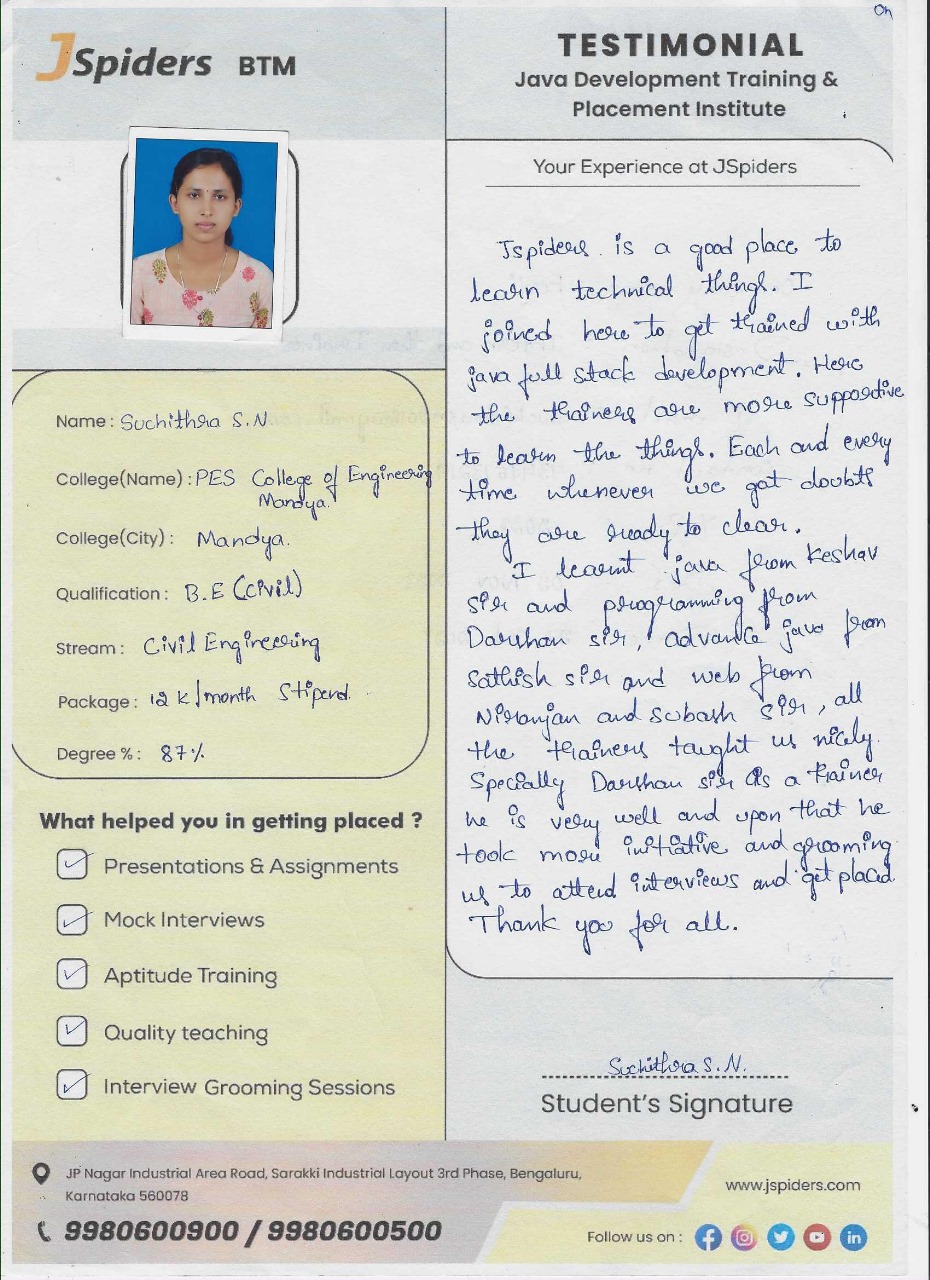 On
JSpiders BTM
TESTIMONIAL
Java Development Training &
Placement Institute
Name : Suchithra S.N
College(Name) : PES College of Engineering
Mandya.
College(City) : Mandya.
Qualification : B.E (civil)
Stream : Civil Engineering
Package : 12 k/month Stipend.
Degree % : 87%
What helped you in getting placed ?
Presentations & Assignments
Mock Interviews
Aptitude Training
Quality teaching
Interview Grooming Sessions
Your Experience at JSpiders
Jspiders is a good place to
learn technical things. I
joined here to get trained with
java full stack development. Here
the trainers are more supportive
to learn the things. Each and every
time whenever we got doubts
they are ready to clear.
I learnt java from Keshav
sir and programming from
Darshan sir, advance java from
Sathish sir and web from
Niranjan and subash sir, all
the trainers taught us nicely.
Specially Darshan sir as a trainer
he is very well and upon that he
took more initiative and grooming
us to attend interviews and get placed.
Thank you for all.
Suchithra S.N.
Student's Signature
JP Nagar Industrial Area Road, Sarakki Industrial Layout 3rd Phase, Bengaluru,
Karnataka 560078
9980600900 / 9980600500
www.jspiders.com
Follow us on :